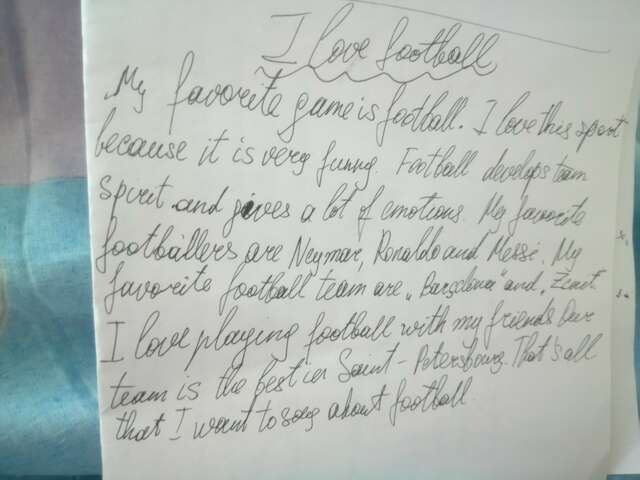 I love football
My favorite game is football. I love this sport
because it is very funny. Football develops team
spirit and gives a lot of emotions. My favorite
footballers are Neymar, Ronaldo and Messi. My
favorite football team are „Barselona" and „Zenit".
I love playing football with my friends Our
team is the best in Saint-Petersburg. That's all
that I want to say about football.